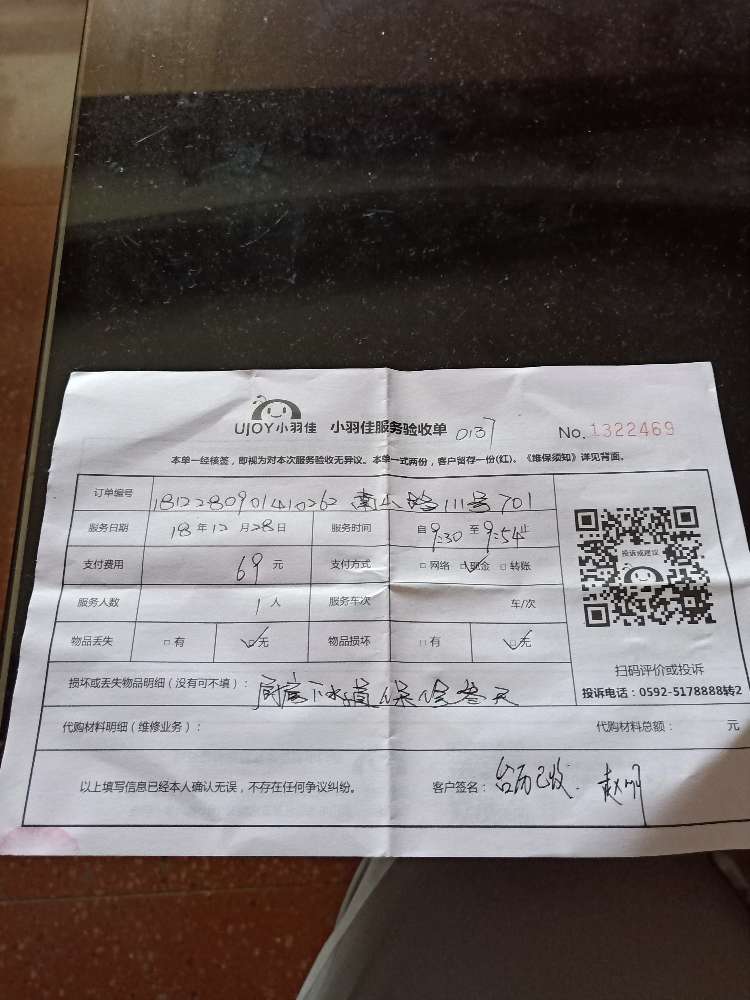 UJOY小羽佳 小羽佳服务验收单 0137 No.1322469
本单一经核签，即视为对本次服务验收无异议。本单一式两份，客户留存一份(红)。《维保须知》详见背面。
订单编号 1812280901410262 南山路111号701
服务日期 18年12月28日 服务时间 自9:30至9:54止
支付费用 69元 支付方式 □网络 ☑现金 □转账
服务人数 1人 服务车次 车/次
物品丢失 □有 ☑无 物品损坏 □有 ☑无
损坏或丢失物品明细（没有可不填）：厨房下水道保修叁天
代购材料明细（维修业务）： 代购材料总额： 元
以上填写信息已经本人确认无误，不存在任何争议纠纷。 客户签名： 台历已收.
投诉或建议
扫码评价或投诉
投诉电话：0592-5178888转2